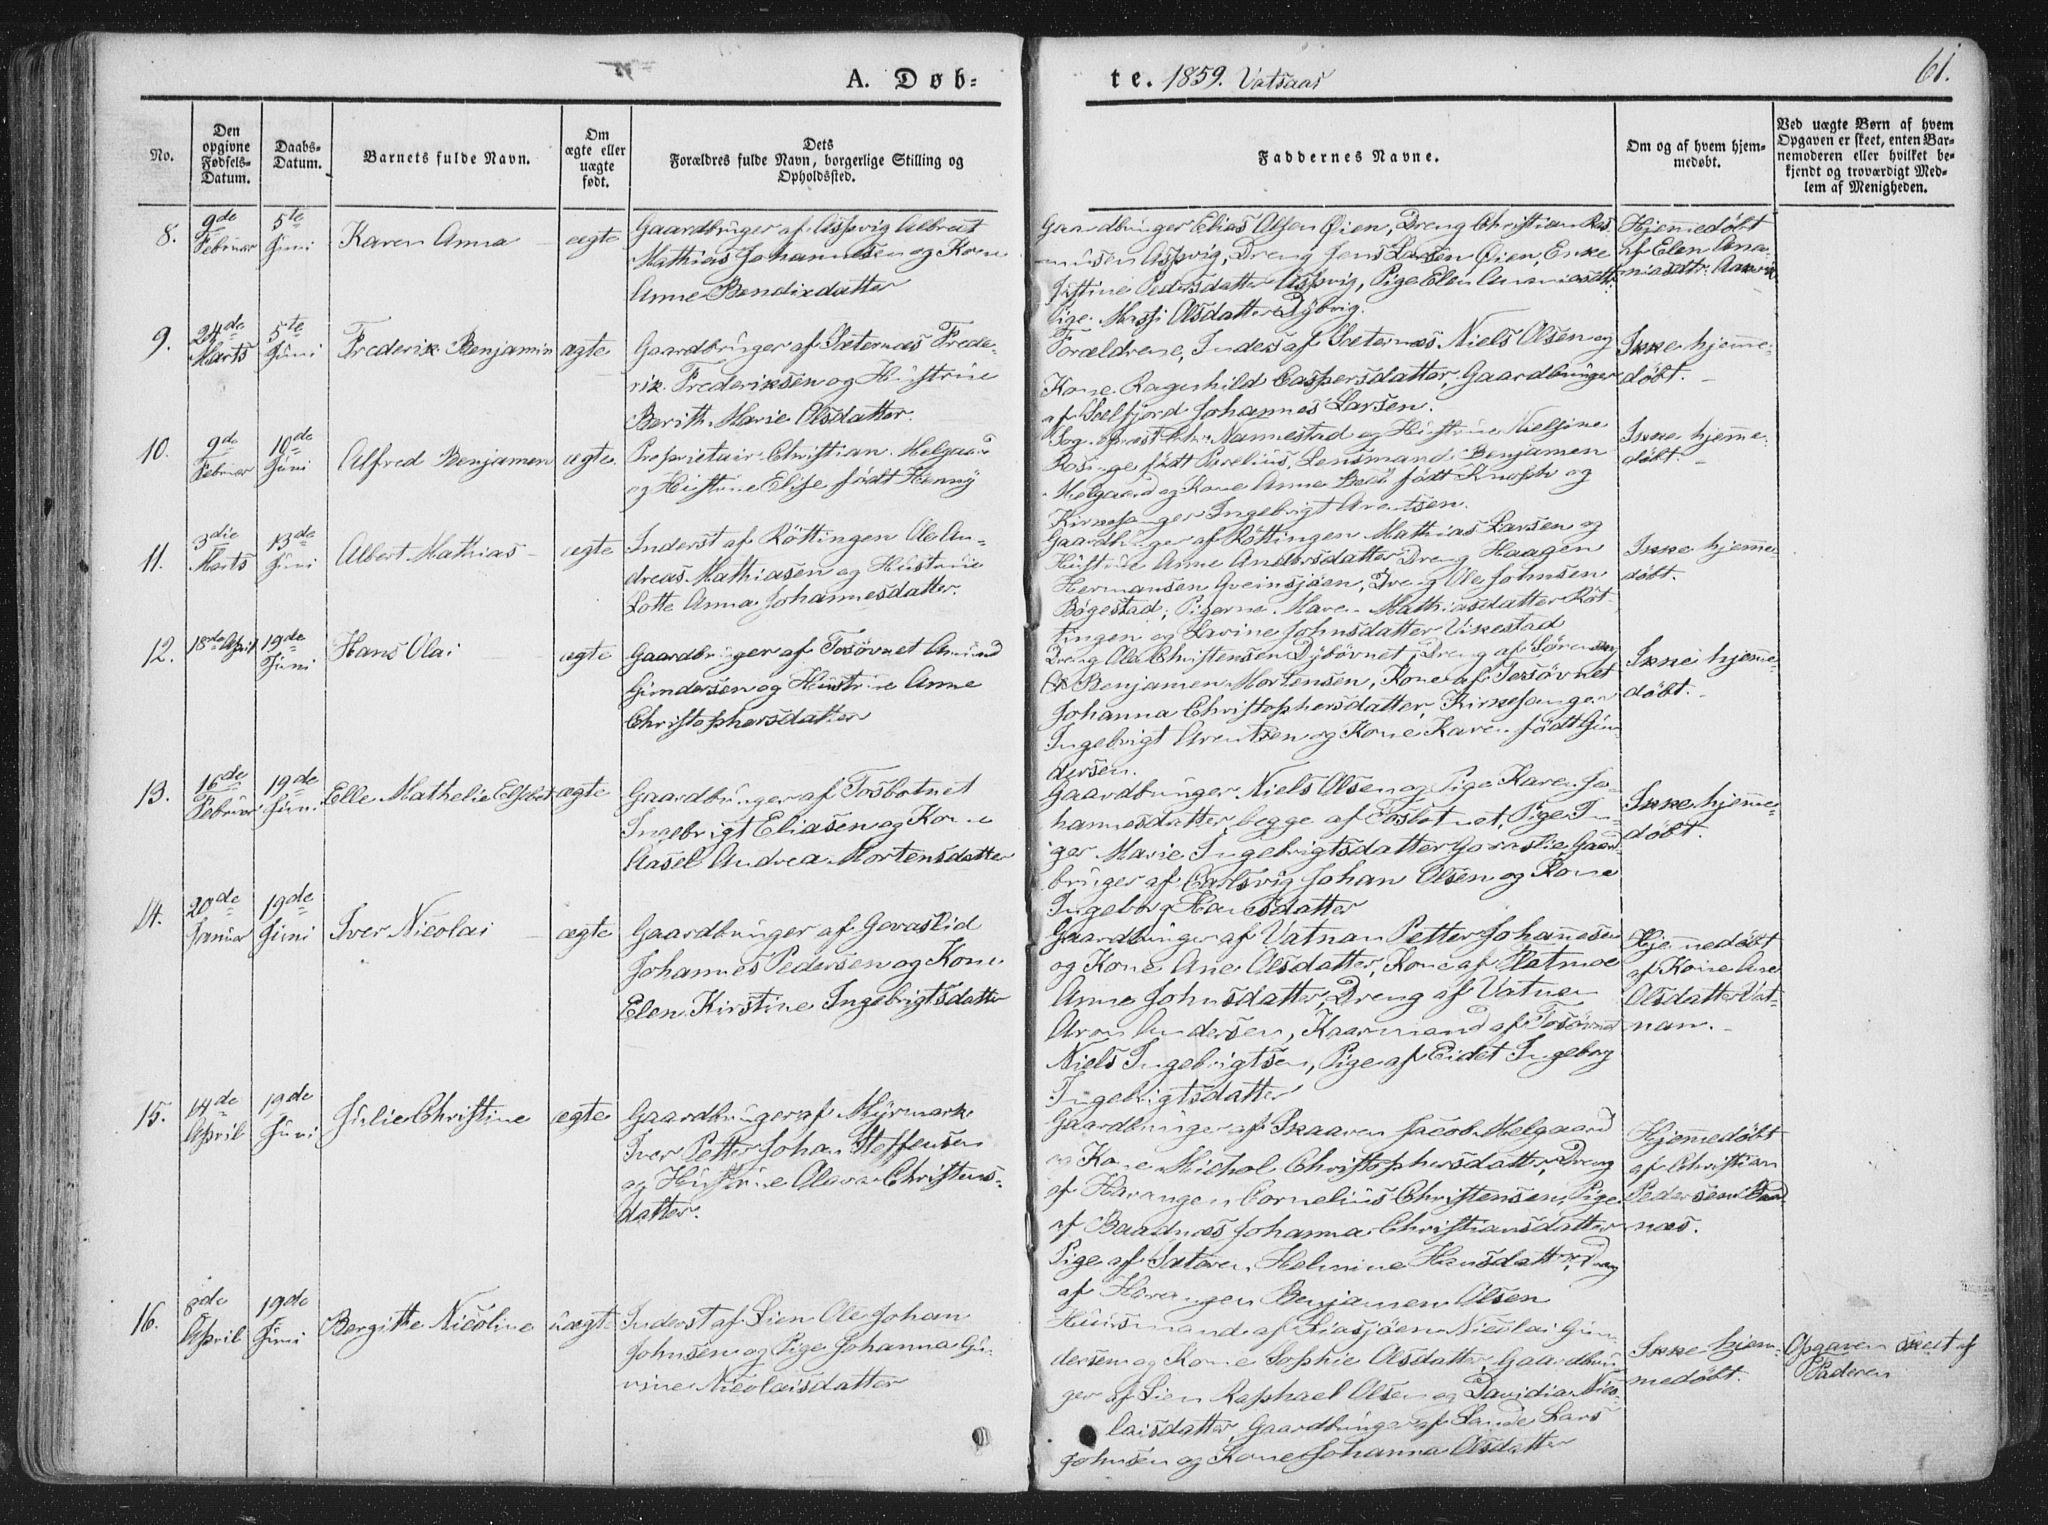 A. Døb-
te. 1859. Vatsaas
61.
No.
Den
opgivne
Fødsels-
Datum.
Daabs-
Datum.
Barnets fulde Navn.
Om
ægte eller
uægte
født.
Dets
Forældres fulde Navn, borgerlige Stilling og
Opholdssted.
Faddernes Navne.
Om og af hvem hjem-
medøbt.
Ved uægte Børn af hvem
Opgaven er skeet, enten Bar-
nemoderen eller hvilket be-
kjendt og troværdigt Med-
lem af Menigheden.
8.
9de
Februar
5te
Juni
Karen Anna
ægte
Gaardbruger af Aspvig Albreut
Mathias Johannesen og Kone
Anne Bendixdatter
Gaardbruger Elias Olsen Øien, Dreng Christian Ras
musen Aspvig, Dreng Jens Larsen Øien, Enke
Justine Pedersdatter Aspvig, Pige Elen Ananiasdtr
Pige Massi Olsdatter Dybvig.
Hjemmedøbt
af Elen Ana-
niasdtr.
9.
24de
Marts
5te
Juni
Frederik Benjamin
ægte
Gaardbruger af Sæternæs Frede-
rik Frederiksen og Hustrue
Berith Marie Olsdatter.
Forældrene, Inders af Sæternæs Niels Olsen og
Kone Ragnhild Caspersdatter, Gaardbruger
af Seelfjord Johannes Larsen.
Ikke hjemme-
døbt.
10.
9de
Februar
10de
Juni
Alfred Benjamen
ægte
Proprietair Christian Melgaard
og Hustrue Elise født Henny
Sogneprest Chr. Nannestad og Hustrue Nielsine
Rosinge født Parelius, Lensmand Benjamen
Melgaard og Kone Anne født Knoph og
Kirkesanger Ingebrigt Arentsen.
Ikke hjemme-
døbt.
11.
3die
Marts
13de
Juni
Albert Mathias
ægte
Inderst af Röttingen Ole An-
dreas Mathiasen og Hustrue
Lotte Anna Johannesdatter.
Gaardbruger af Röttingen Mathias Larsen og
Hustrue Anne Andersdatter, Dreng Haagen
Hermansen Qveinsjøen, Dreng Ole Johnsen
Bøgestad, Pigerne Maren Mathiasdatter Röt
tingen og Lavine Johnsdatter Vikestad
Ikke hjemme-
døbt.
12.
18de April
19de
Juni
Hans Olai
ægte
Gaardbruger af Tosøvnet Amund
Gundersen og Hustrue Anne
Christophersdatter
Dreng Ole Christensen Dybøvnet, Dreng af Søren
Benjamen Mortensen, Kone af Tosøvnet
Johanna Christophersdatter, Kirkesanger
Ingebrigt Arentsen og Kone Karen født Gun
dersen.
Ikke hjemme-
døbt.
13.
16de
Februar
19de
Juni
Elle Mathelie Elsbet
ægte
Gaardbruger af Tosbotnet
Ingebrigt Eliasen og Kone
Aasel Andrea Mortensdatter
Gaardbruger Niels Olsen og Pige Karen Jo-
hannesdatter begge af Tosbotnet, Pige In
ger Marie Ingebrigtsdatter Goraslie, Gaard
bruger af Carlsvig Johan Olsen og Kone
Ingeborg Hansdatter
Ikke hjemme-
døbt.
14.
20de
Januar
19de
Juni
Iver Nicolai
ægte
Gaardbruger af Goraslid
Johannes Pedersen og Kone
Elen Kirstine Ingebrigtsdatter
Gaardbruger af Vatnan Petter Johannesen
og Kone Ane Olsdatter, Kone af Hatmoe
Anne Johnsdatter, Dreng af Vatnen
Aron Andersen, Kaarmand af Tosøvnet
Niels Ingebrigtsen, Pige af Eidet Ingeborg
Ingebrigtsdatter
Hjemmedøbt
af Kone Ane
Olsdatter Vat-
nan.
15.
14de
April
19de
Juni
Julie Christine
ægte
Gaardbruger af Myrmark
Iver Petter Johan Steffensen
og Hustrue Olava Christens-
datter.
Gaardbruger af Skaaren Jacob Melgaard
og Kone Michol Christophersdatter, Dreng
af Harangen Cornelius Christensen, Pige
af Baadnæs Johanna Christiansdatter
Pige af Sætaren Helmine Hansdatter, Dreng
af Horangen Benjamen Olsen
Hjemmedøbt
af Christian
Pedersen Baad
næs.
16.
8de
April
19de
Juni
Bergithe Nicoline
uægte
Inderst af Lien Ole Johan
Johnsen og Pige Johanna Gu-
rine Nicolaisdatter
Huusmand af Liasjøen Nicolai Gun
dersen og Kone Sophie Olsdatter, Gaardbru
ger af Lien Raphael Olsen og Davidia Nico
laisdatter, Gaardbruger af Lande Lars
Johnsen og Kone Johanna Olsdatter
Ikke hjem-
medøbt.
Opgaven skeet af
Faderen